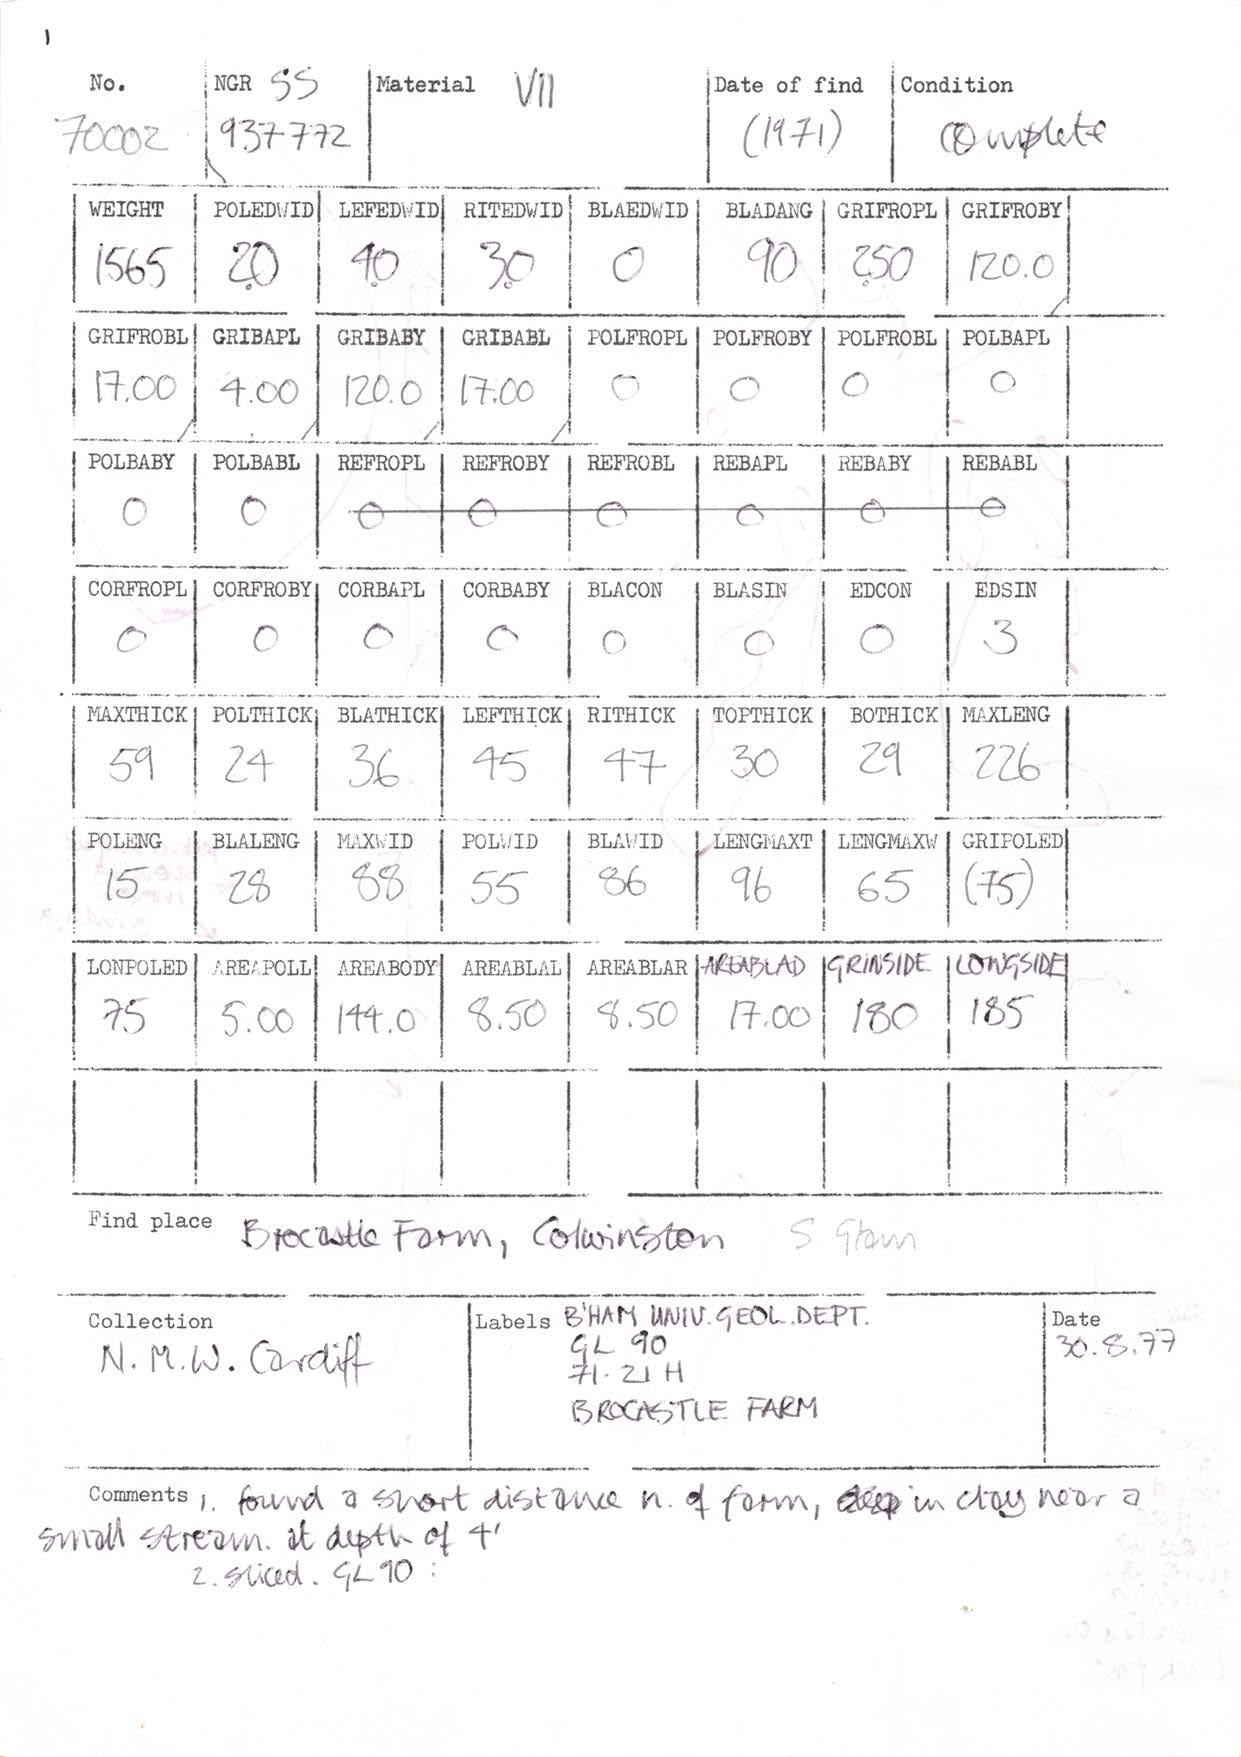 1
No. NGR SS Material VII Date of find Condition
70002 937772 (1971) Complete
WEIGHT POLEDWID LEFEDWID RITEDWID BLAEDWID BLADANG GRIFROPL GRIFROBY
1565 2.0 4.0 3.0 0 90 2.50 120.0
GRIFROBL GRIBAPL GRIBABY GRIBABL POLFROPL POLFROBY POLFROBL POLBAPL
17.00 4.00 120.0 17.00 0 0 0 0
POLBABY POLBABL REFROPL REFROBY REFROBL REBAPL REBABY REBABL
0 0 0 0 0 0 0 0
CORFROPL CORFROBY CORBAPL CORBABY BLACON BLASIN EDCON EDSIN
0 0 0 0 0 0 0 3
MAXTHICK POLTHICK BLATHICK LEFTHICK RITHICK TOPTHICK BOTHICK MAXLENG
59 24 36 45 47 30 29 226
POLENG BLALENG MAXWID POLWID BLAWID LENGMAXT LENGMAXW GRIPOLED
15 28 88 55 86 96 65 (75)
LONPOLED AREAPOLL AREABODY AREABLAL AREABLAR AREABLAD GRINSIDE LONGSIDE
75 5.00 144.0 8.50 8.50 17.00 180 185
Find place Brocastle Farm, Colwinston S Glam
Collection Labels B'HAM UNIV. GEOL. DEPT. Date
N.M.W. Cardiff GL 90 30.8.77
71.21 H
BROCASTLE FARM
Comments 1. found a short distance n. of farm, in clay near a
small stream. at depth of 4'
2. sliced. GL90 :